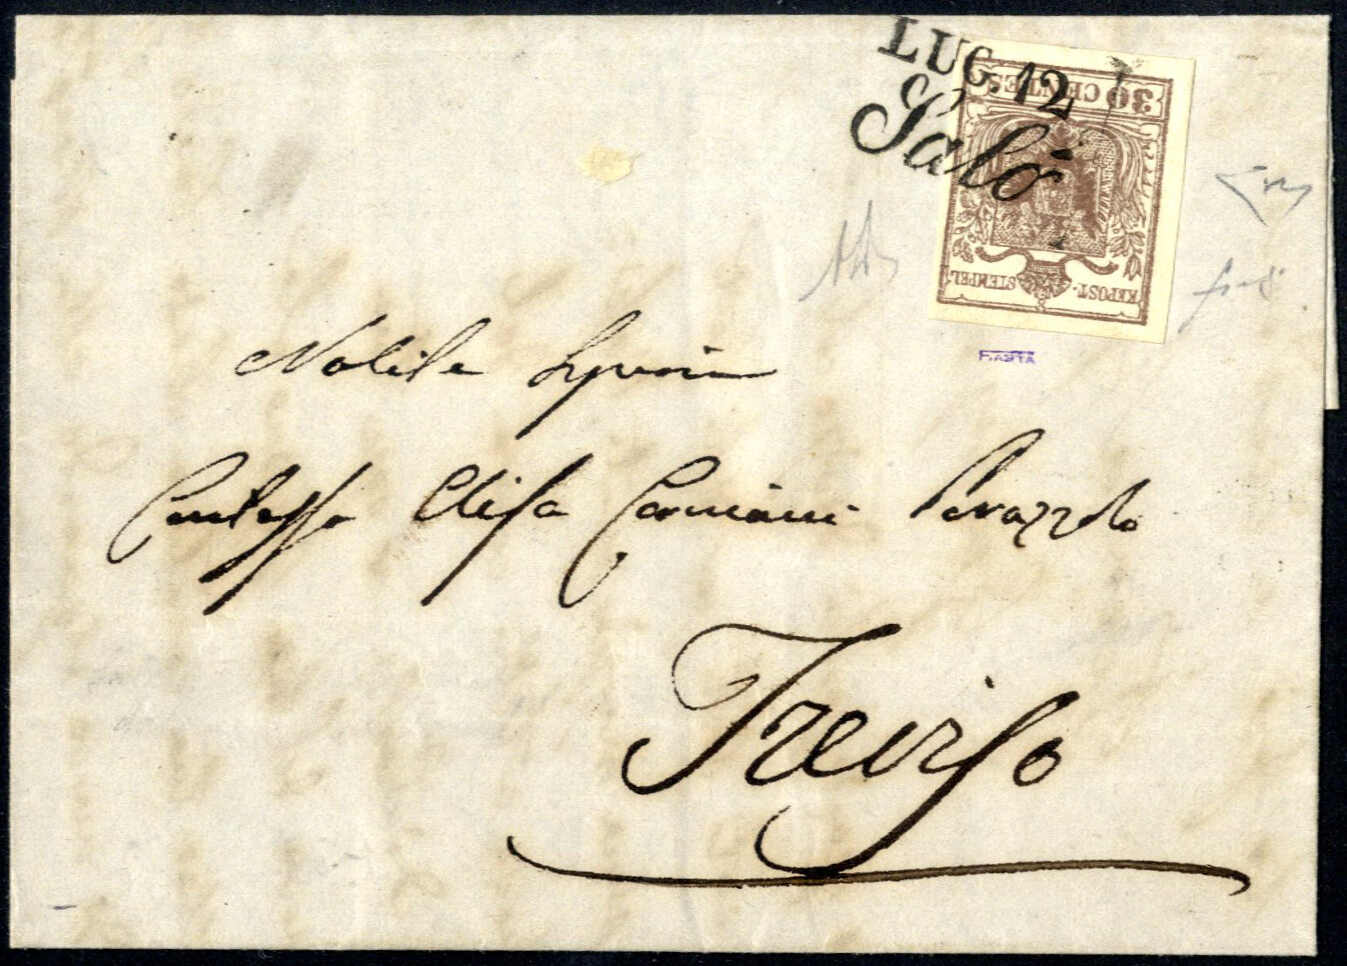 LUG. 12
Salò
30 CENTES
KKPOST-STEMPEL
FIASTA
Nobile Signora
Contessa Elisa Corniani
Treviso